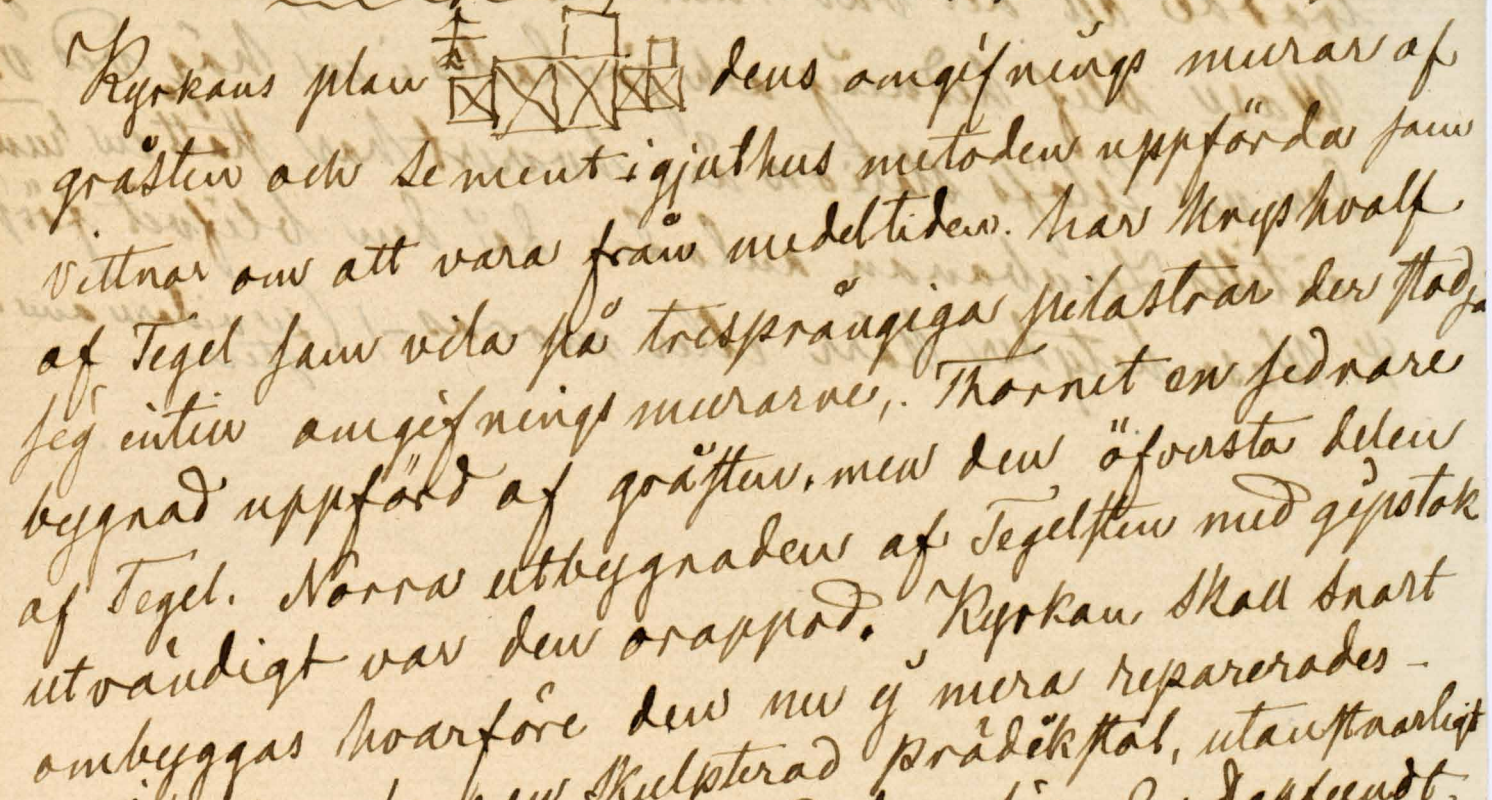 Kyrkans plan dens omgifnings murar af
gråsten och sement i gjuthus metoden uppförda som
vittnar om att vara från medeltiden. har Kryshvalf
af Tegel som vila på tresprångiga pilastrar der stödja
sig intin omgifnings murarne,. Thornet en sednare
bygnad uppförd af gråsten, men den öfversta delen
af Tegel. Norra utbygnaden af Tegelsten med gipstak
utvändigt var den orappad. Kyrkan skall snart
ombyggas hvarföre den nu ej mera reparerades –
en skulpterad prädikstol, utanstnarligt